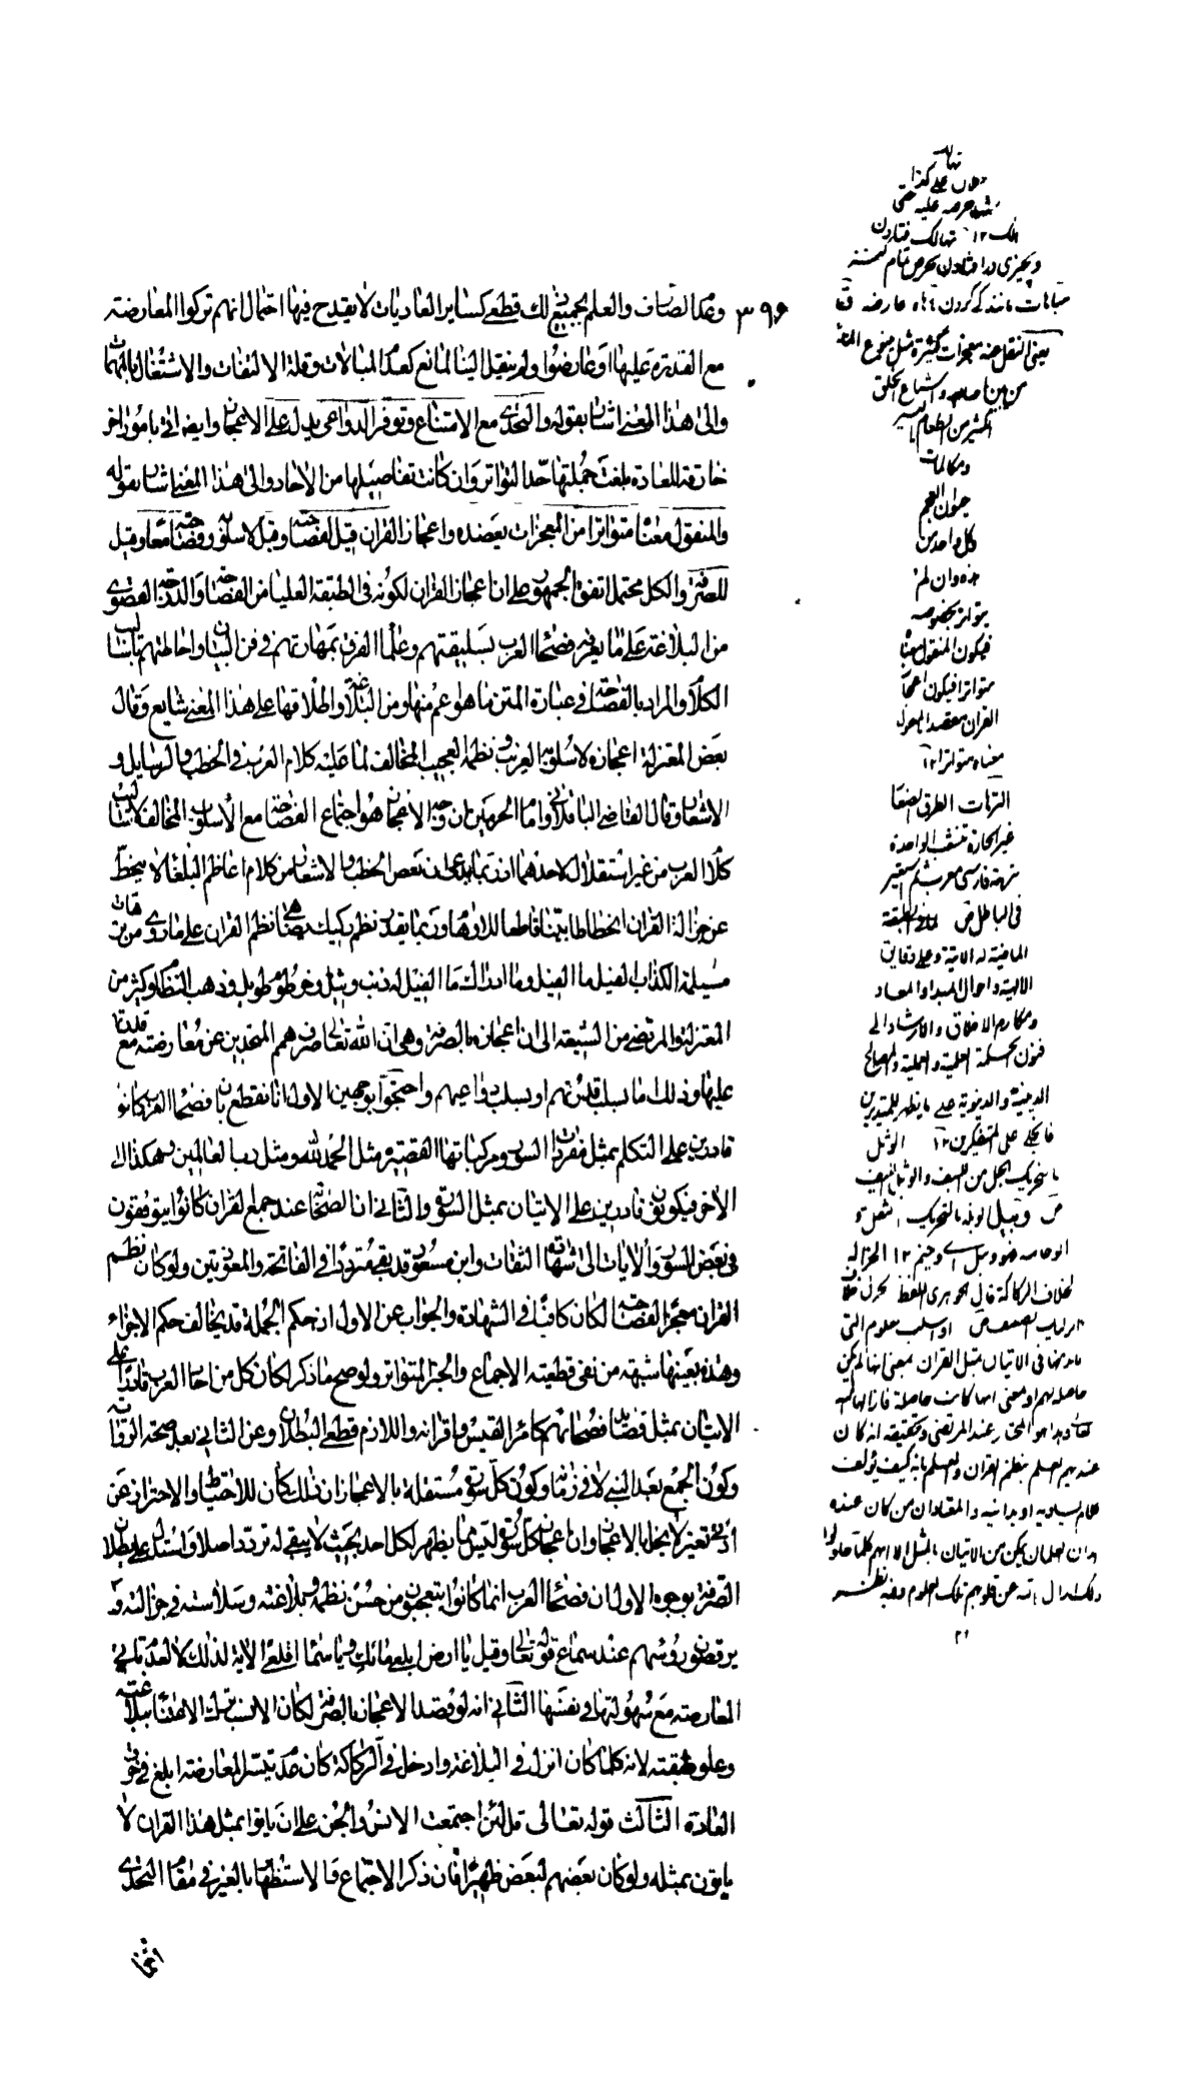 ٣٩۶
وعدم الصارف والعلم بجميع ذلك قطعى كساير العاديات لا يقدح فيها احتمال انهم تركوا المعارضة
مع القدرة عليها او عارضوا ولم ينقل الينا لمانع كعدم المبالات وقلة الالتفات والاشتغال بالمهمات
والى هذا المعنى اشار بقوله والتحدى مع الامتناع وتوفر الدواعى يدل على الاعجاز وايضا اتى بامور اخر
خارقة للعادة بلغت جملتها حد التواتر وان كانت تفاصيلها من الاحاد والى هذا المعنى اشار بقوله
والمنقول معناه متواترا من المعجزات يعضده واعجاز القران قيل لفصاحته وقيل لاسلوبه وفصاحته معا وقيل
للصرفة والكل محتمل اتفق الجمهور على ان اعجاز القران لكونه فى الطبقة العليا من الفصاحة والدرجة القصوى
من البلاغة على ما يعرفه فصحاء العرب بسليقتهم وعلماء الفرق بمهارتهم فى فن البيان واحاطتهم باساليب
الكلام والمراد بالفصاحة فى عبارة المتن ما هو اعم منها ومن البلاغة واطلاقها على هذا المعنى شايع وقال
بعض المعتزلة اعجازه لاسلوبه الغريب ونظمه العجيب المخالف لما عليه كلام العرب فى الخطب والرسايل و
الاشعار وقال القاضى الباقلانى وامام الحرمين ان وجه الاعجاز هو اجتماع الفصاحة مع الاسلوب المخالف لاساليب
كلام العرب من غير استقلال لاحدهما اذ ربما يدعى ان بعض الخطب والاشعار من كلام اعاظم البلغاء لا ينحط
عن جزالة القران انحطاطا بينا قاطعا للاوهام وربما يقدر نظم ركيك يضاهى نظم القران على ما روى من ترهات
مسيلمة الكذاب الفيل ما الفيل وما ادراك ما الفيل له ذنب وثيل وخرطوم طويل وذهب النظام وكثير من
المعتزلة والمرتضى من الشيعة الى ان اعجازه بالصرفة وهى ان الله تعالى صرف همم المتحدين عن معارضته مع قدرتهم
عليها وذلك اما بسلب قدرتهم او بسلب دواعيهم واحتجوا بوجهين الاول انا نقطع بان فصحاء العرب كانوا
قادرين على التكلم بمثل مفردات السور ومركباتها القصيرة مثل الحمد لله ومثل رب العالمين وهكذا الى
الاخر فيكونون قادرين على الاتيان بمثل السورة والثانى ان الصحابة عند جمع القران كانوا يتوقفون
فى بعض السور والايات الى شهادة الثقات وابن مسعود قد بقى مترددا فى الفاتحة والمعوذتين ولو كان نظم
القران معجزا لفصاحته لكان كافيا فى الشهادة والجواب عن الاول ان حكم الجملة قد يخالف حكم الاجزاء
وهذه بعينها شبهة من نفى قطعية الاجماع والخبر المتواتر ولو صح ما ذكر لكان كل من احاد العرب قادرا على
الاتيان بمثل قصايد فصحائهم كامرء القيس واقرانه واللازم قطعى البطلان وعن الثانى بعد صحة الرواية
وكون الجمع بعد النبى لا فى زمانه وكون كل سورة مستقلة بالاعجاز ان ذلك كان للاحتياط والاحتراز عن
ادنى تغيير لا يخل بالاعجاز وان اعجاز كل سورة ليس مما يظهر لكل احد بحيث لا يبقى له تردد اصلا واستدل على بطلان
الصرفة بوجوه الاول ان فصحاء العرب انما كانوا يتعجبون من حسن نظمه وبلاغته وسلاسته فى جزالته و
يرقصون رؤسهم عند سماع قوله تعالى وقيل يا ارض ابلعى ماءك ويا سماء اقلعى الاية لذلك لا لعدم تاتى
المعارضة مع سهولتها فى نفسها الثانى انه لو قصد الاعجاز بالصرفة لكان الانسب ترك الاعتناء ببلاغته
وعلو طبقته لانه كلما كان انزل فى البلاغة وادخل فى الركاكة كان عدم تيسر المعارضة ابلغ فى خرق
العادة الثالث قوله تعالى قل لئن اجتمعت الانس والجن على ان ياتوا بمثل هذا القران لا
ياتون بمثله ولو كان بعضهم لبعض ظهيرا فان ذكر الاجتماع والاستظهار بالغير فى مقام التحدى
تهالك
على كذا
شد حرصه عليه حتى
هلك ١٢ تهالك فتادن
وبچيزى در افتادن بحرص تمام
مبالات مانند كردن
يعنى النقل عنه معجزات كثيرة مثل
من بين اصابعه واشباع الخلق
الكثير من الطعام اليسير
ومكالمات
حيوان العجم
كل واحد من
هذه وان لم
يتواتر بخصوصه
فيكون المنقول معنا
متواترا فيكون اعجاز
القران معتضدا بالمنقول
معناه متواترا ١٢
الترهات الطرق الصغار
غير الجادة تتشعب الواحدة
ترهة فارسى معرب ثم استعير
فى الباطل ص
الماضية له الامية وعلى دقايق
الالهية واحوال المبدا والمعاد
ومكارم الاخلاق والارشاد الى
فنون الحكمة العلمية والعملية والمصالح
الدينية والدنيوية على ما يظهر للمتدبرين
على المتفكرين ١٢ الوثل
بالتحريك الحبل من الليف والوثيل الليف
بخلاف الركاكة قال الجوهرى اللفظ
او سلب العلوم التى
فى الاتيان بمثل القران بمعنى انها لم تكن
حاصلة لهم او بمعنى انها كانت حاصلة فازالها الله
هذا هو المختار عند المرتضى وتحقيقه انه كان
عندهم العلم بنظم القران والعلم بانه كيف يؤلف
كلام يساويه او يدانيه والمعتاد ان من كان عنده
هذان العلمان يمكن من الاتيان بالمثل الا انهم كلما حاولوا
ذلك ازال الله عن قلوبهم تلك العلوم وفيه نظر
١٢